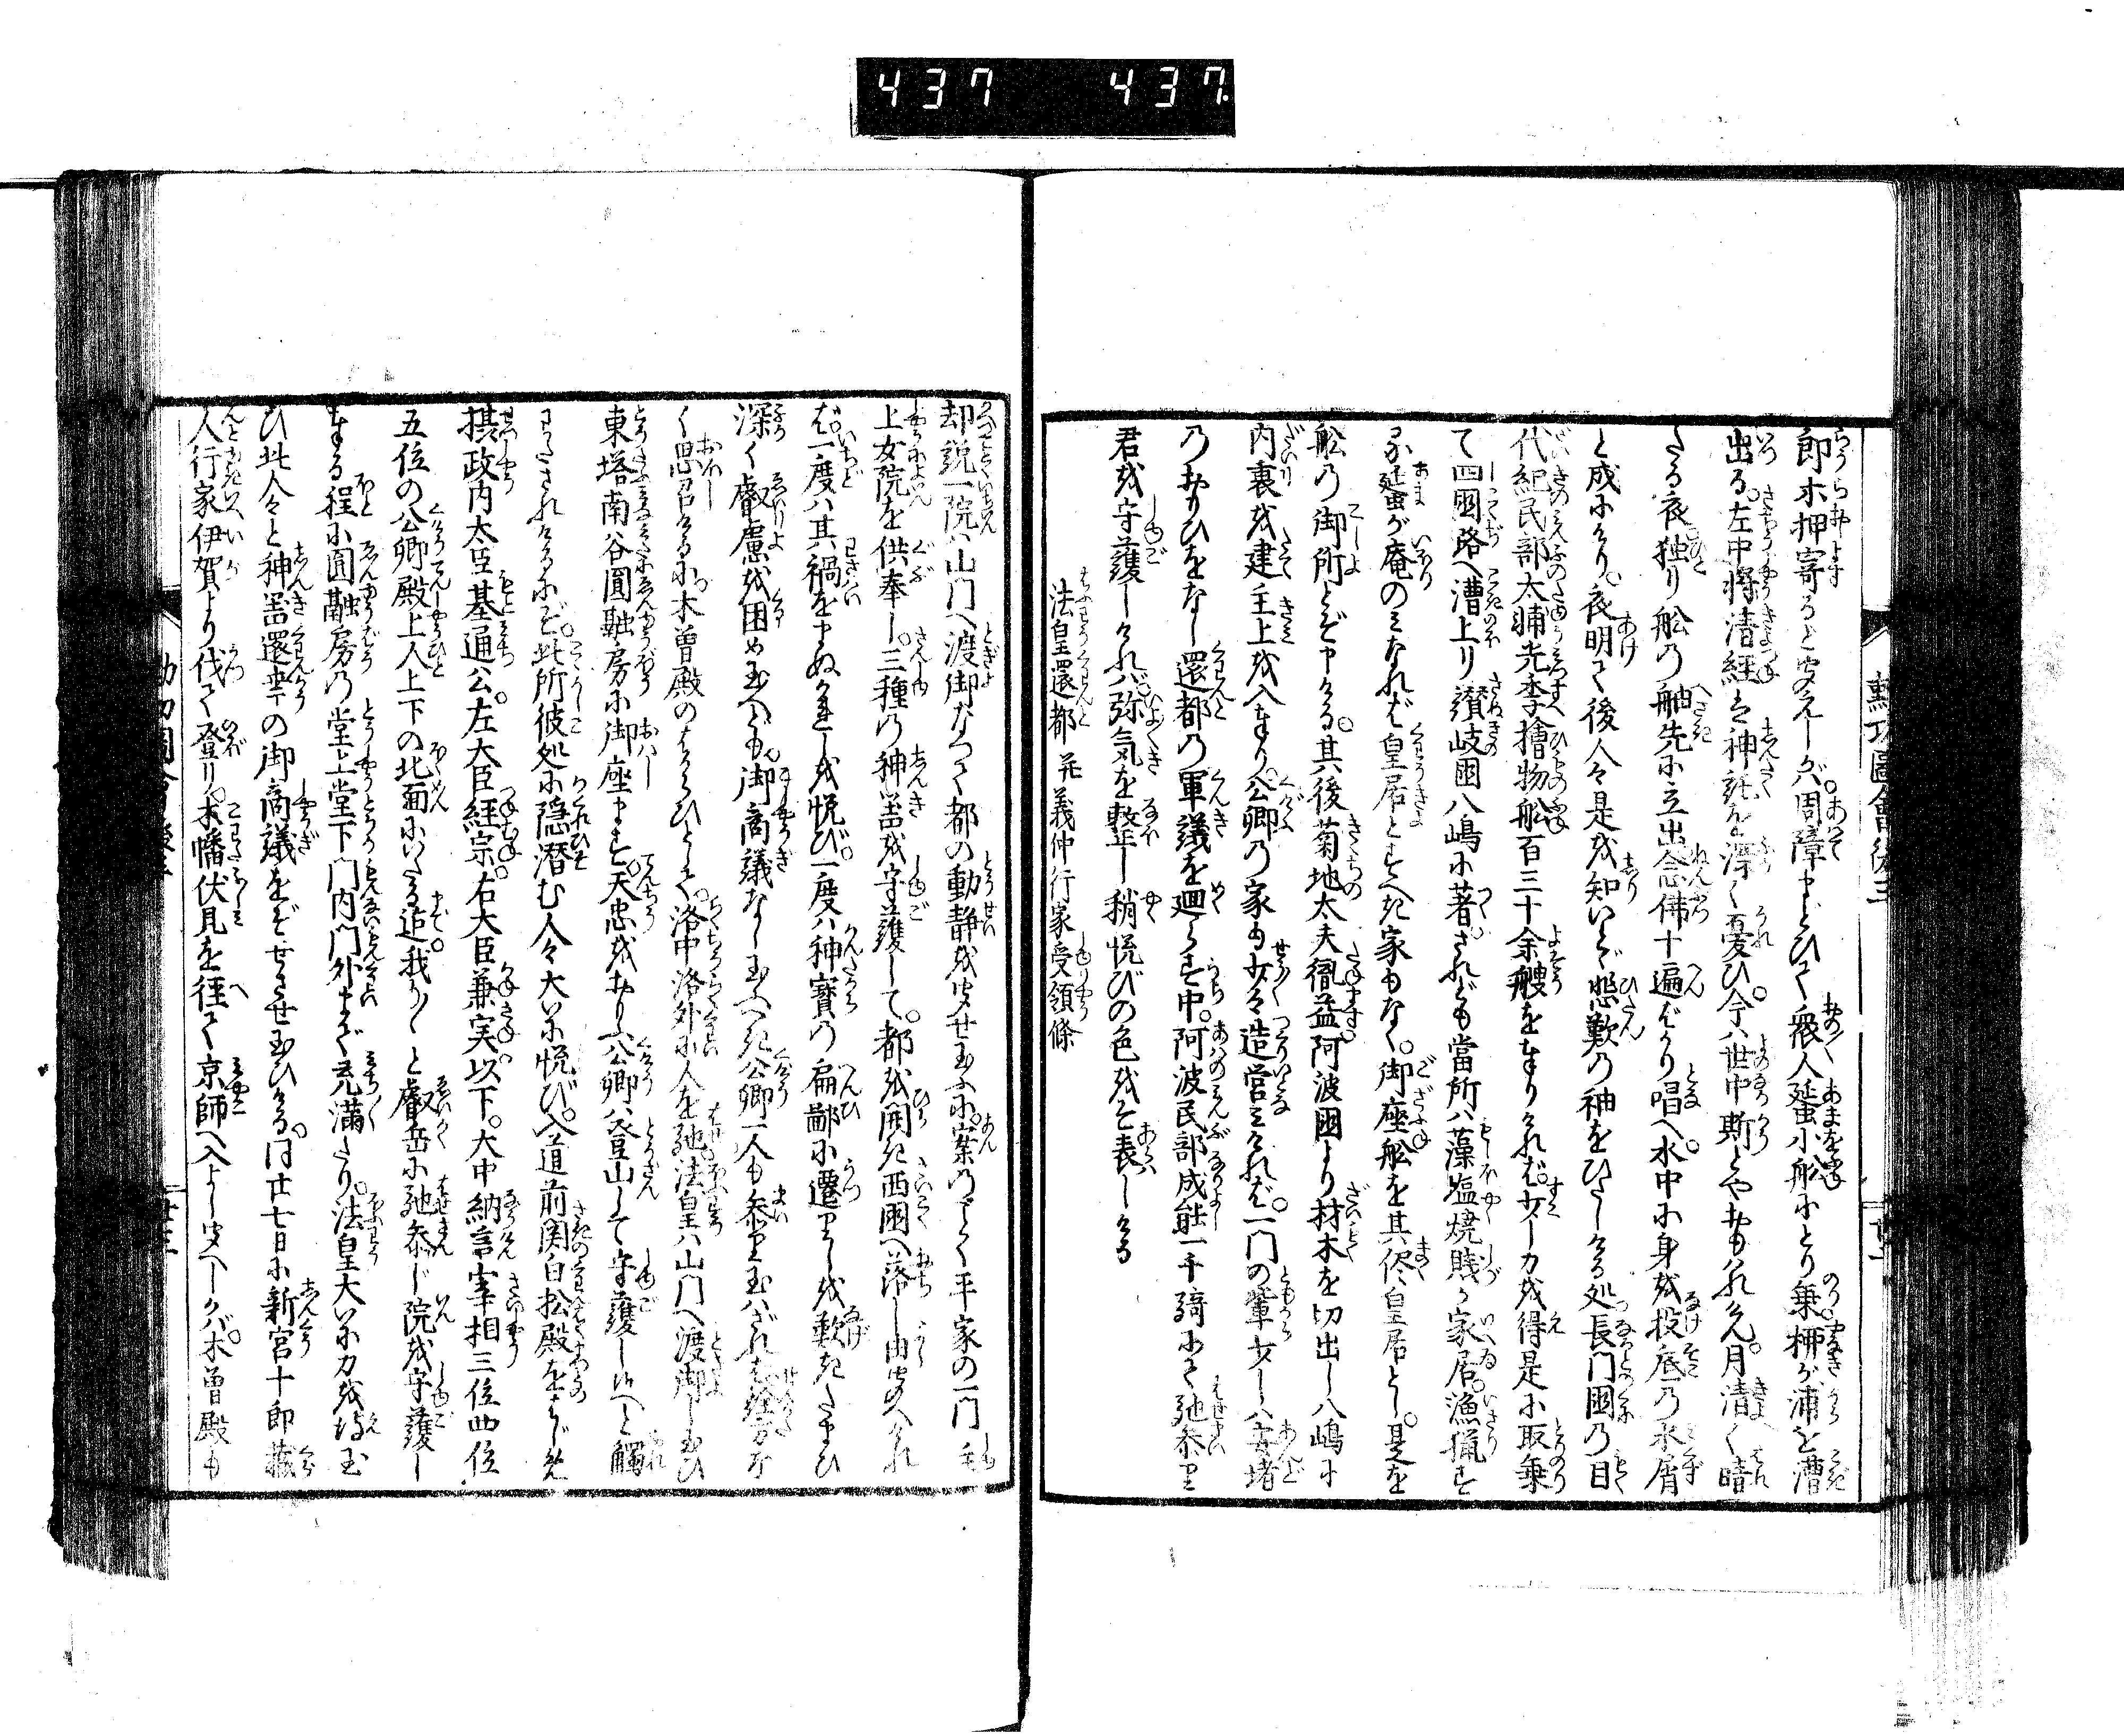 437 437.
郎等押寄ると聞えしが。周障まどひて衆人蜑小舩にとり乗。柳が浦を漕
出る。左中将清経は神託を深く憂ひ。今は世中斯とやおもはれけん。月清く晴
たる夜独り舩の舳先に立出念佛十遍ばかり唱へ。水中に身を投底の水屑
と成にけり。夜明て後人々是を知いと悲歎の袖をひたしける処長門國の目
代紀民部太輔光季檜物舩百三十余艘をまゐりければ。少し力を得是に取乗
て四國路へ漕上り讃岐國八嶋に著。されども當所は藻塩焼賎が家居。漁猟す
る蜑が庵のみなれば皇居とすべき家もなく。御座舩を其侭皇居とし。是を
舩の御所とぞ申ける。其後菊地太夫胤益阿波國より材木を切出し八嶋に
内裏を建主上を入奉り。公卿の家も少々造営みければ。一門の輩少しハ安堵
のおもひをなし還都の軍議を廻らす中。阿波民部成能一千騎にて馳参り
君を守護しければ弥気を整し稍悦びの色をぞ表しける
法皇還都 并 義仲行家受領條
却説一院ハ山門へ渡御なつて都の動静を聞せ玉ふに。案のごとく平家の一門主
上女院を供奉し。三種の神器を守護して。都を開き西國へ落し由聞へけれ
ば。一度ハ其禍をまぬかれしを悦び。一度ハ神寶の扁鄙に遷りしを歎きたまひ
深く叡慮を困め玉へども。御商議なし玉べき公卿一人も参り玉はざれば
く思召ける小木曽殿のはからひとして。洛中洛外に人を馳。法皇ハ山門へ渡御し玉ひ
東塔南谷圓融房に御座ます。天忠をおもふ公卿ハ登山して守護し候へと觸
わたされけるにぞ。此所彼処に隠潜む人々大いに悦び。入道前関白松殿をはじめ
摂政内大臣基通公。左大臣経宗。右大臣兼実以下。大中納言宰相三位四位
五位の公卿殿上人上下の北面にいたる迄。我々と叡岳に馳参じ院を守護し
奉る程に圓融房の堂上堂下門内門外まで充満たり。法皇大いに力を得玉
ひ此人々と神器還幸の御商議をぞせさせ玉ひける。同廿七日に新宮十郎蔵
人行家伊賀より伐て登り。木幡伏見を径て京師へ入よし聞へしかバ。木曽殿も